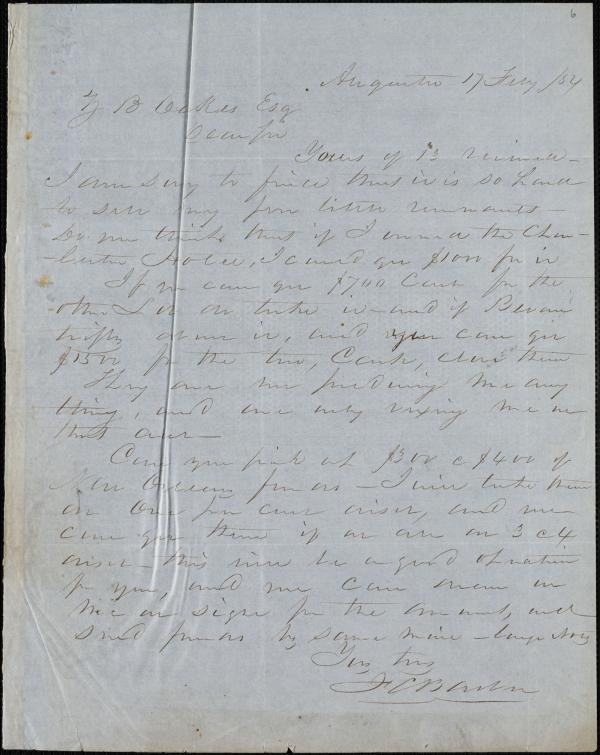 6
Augusta 17 Feby /54
Z B Oakes Esq
Dear Sir
Yours of 13 received
I am sory to find that it is so hard
to sell my few little remnants
Do you think that if I owned the Char
leston Hotel, I could get $1000 for it
If you can get $700 Cash for the
other Lot on take it and if
over it, and you can get
$1500 for the two, Cash, close them
They are not producing me any
thing, and are only vexing me in
that am
Can you pick up $300 @ $400 of
New Orleans funds I will take them
on one per cent and we
can get them if on 3 @ 4
this will be a good operation
for you, and you can draw on
me at sight for the amount, and
send funds by same mail large Notes
Yrs try